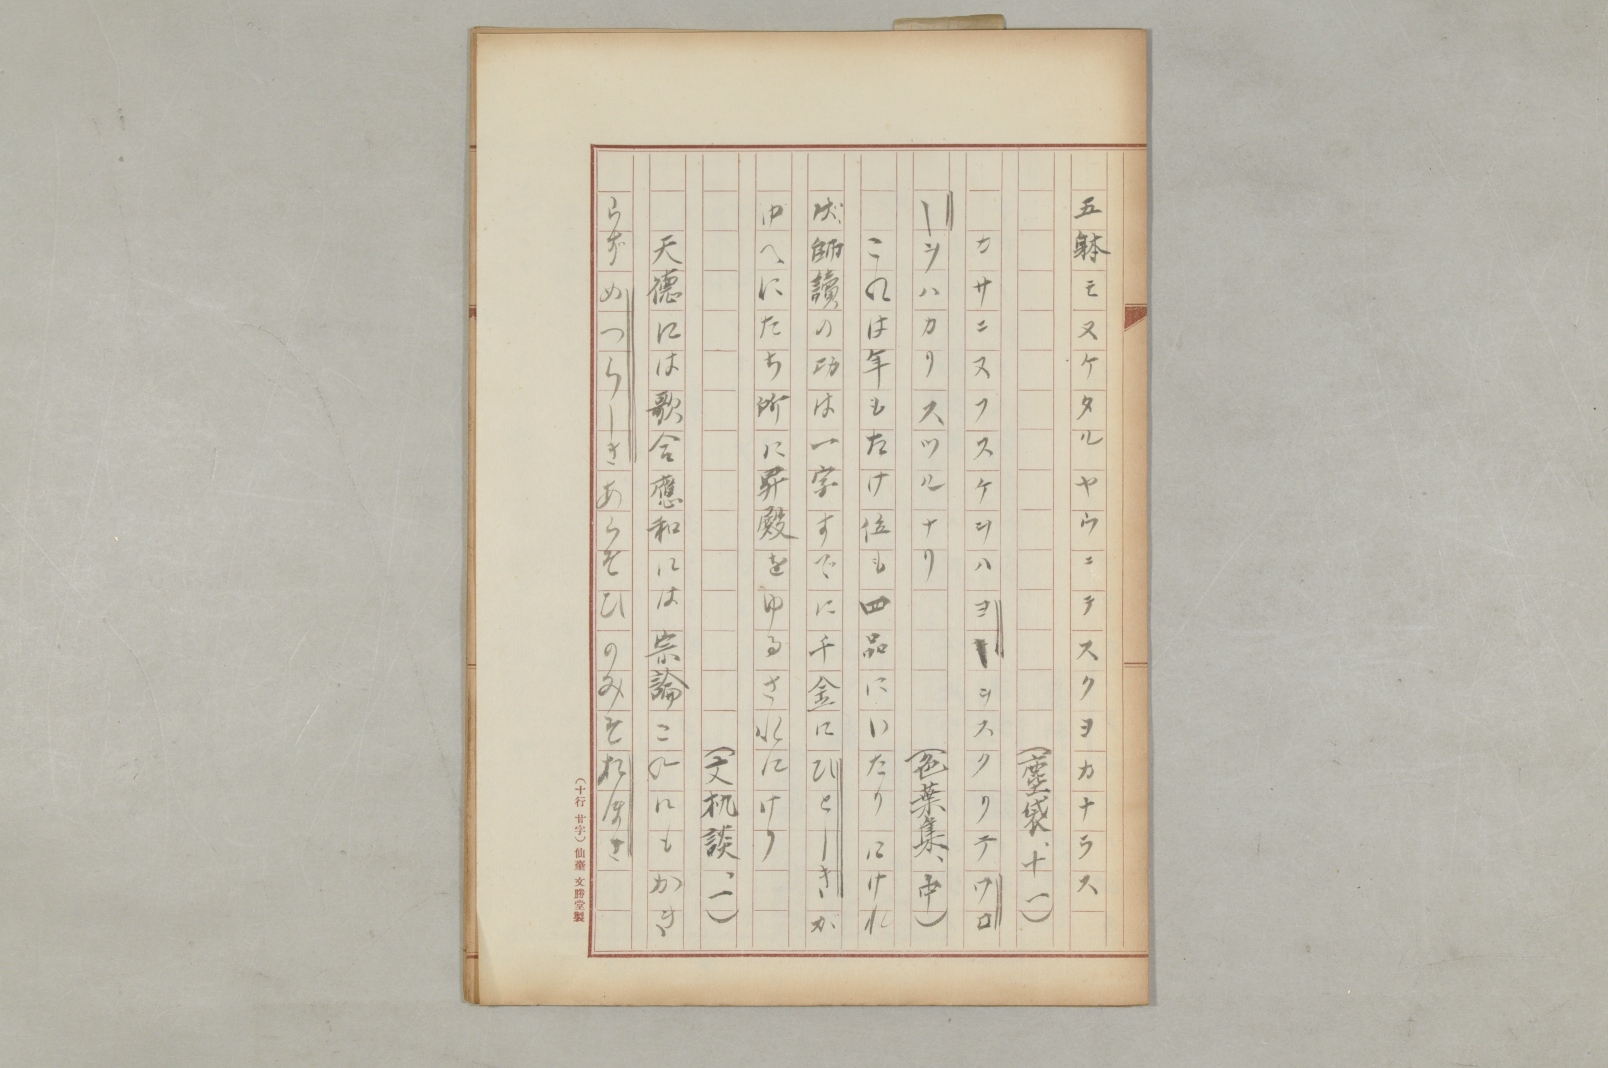 五躰モヌケタルヤウニテスクヨカナラス
(塵袋、十一)
カサニヌフスケヲハヨーシスクリテワロ
シヲハカリスツルナリ
(色葉集、中)
このは年もたけ位も四品にいたりにけれ
ば、師讀の功は一字すでに千金にひとしきが
ゆへにたち所に昇殿をゆるされにけり
(文机談、一)
天德には歌合應和には宗論このにもかき
らずめつらしきあらそひのみそおほき
(十行 廿字) 仙臺 文勝堂製